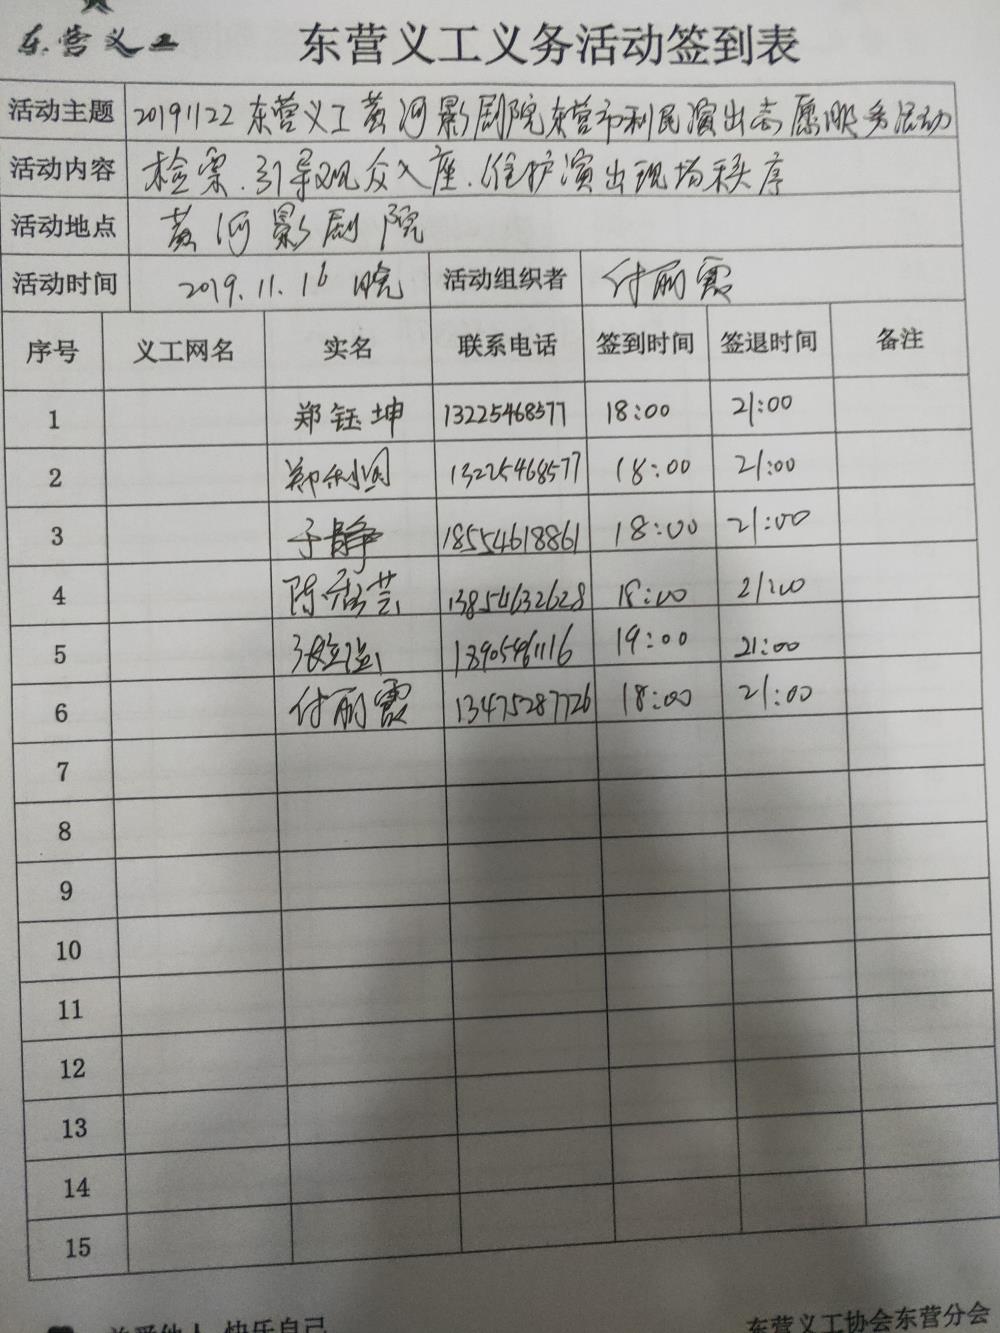 东营义工 东营义工义务活动签到表
活动主题 20191122东营义工黄河影剧院东营市利民演出志愿服务活动
活动内容 检票.引导观众入座.维护演出现场秩序
活动地点 黄河影剧院
活动时间 2019.11.16晚 活动组织者 付丽霞
序号 义工网名 实名 联系电话 签到时间 签退时间 备注
1 郑钰坤 13225468577 18:00 21:00
2 郑利 13225468577 18:00 21:00
3 于静 18554618861 18:00 21:00
4 陈芸 13854632628 18:00 21:00
5 13905461116 19:00 21:00
6 付丽霞 13475287726 18:00 21:00
7
8
9
10
11
12
13
14
15
关爱他人 快乐自己 东营义工协会东营分会